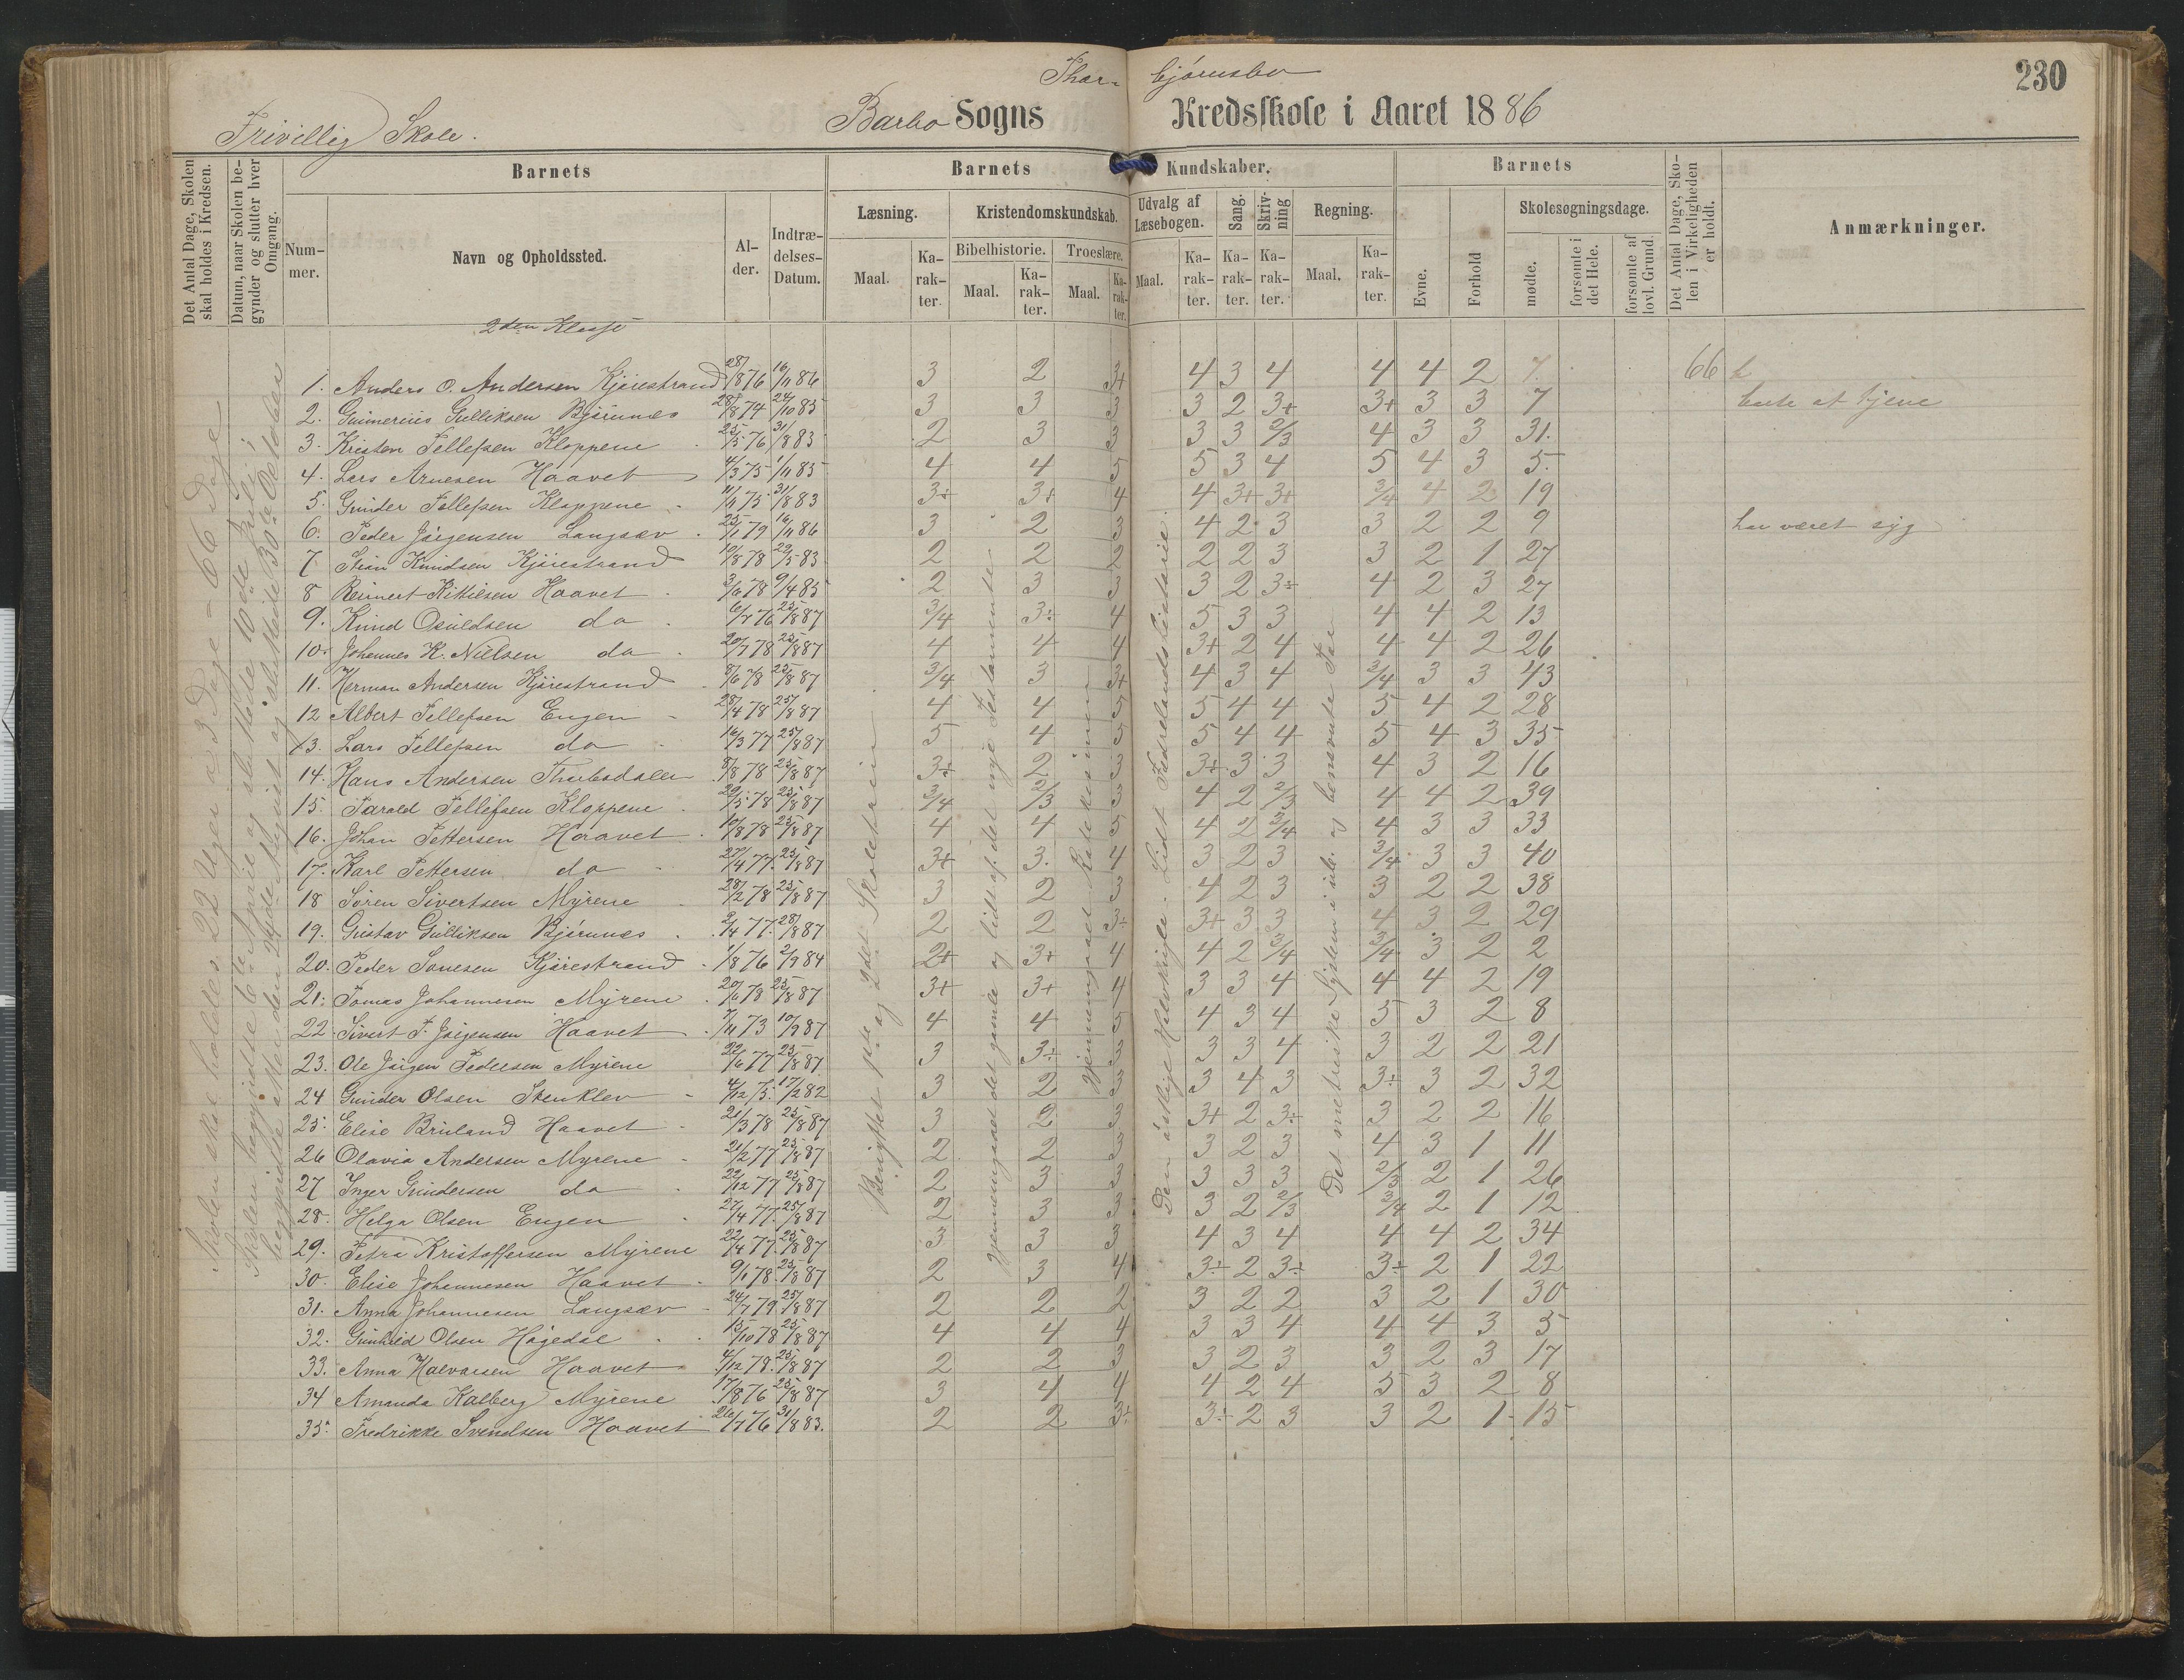 230
Thor- bjørnsbo
Barbo Sogns Kredsskole i Aaret 1886
Frivillig Skole.
Det Antal Dage, Skolen skal holdes i Kredsen.
Datum, naar Skolen begynder og slutter hver Omgang.
Barnets
Nummer.
Navn og Opholdssted.
Alder.
Indtrædelses-Datum.
Barnets Kundskaber.
Læsning.
Maal.
Karakter.
Kristendomskundskab.
Bibelhistorie.
Maal.
Karakter.
Troeslære.
Maal.
Karakter.
Udvalg af Læsebogen.
Maal.
Karakter.
Sang.
Karakter.
Skrivning
Karakter.
Regning.
Maal.
Karakter.
Barnets
Evne.
Forhold
Skolesøgningsdage.
mødte.
forsømte i det Hele.
forsømte af lovl. Grund.
Det Antal Dage, Skolen i Virkeligheden er holdt.
Anmærkninger.
2den Klasse
1. Anders O. Andersen Kjørestrand 28/8 76 16/11 86 3 2 3+ 4 3 4 4 4 2 7. 66
2. Gunerius Gulliksen Bjørnnes 28/8 74 24/10 85 3 3 3 3 2 3+ 3+ 3 3 7 at tjene
3. Kristen Tellefsen Kloppene 25/5 76 31/8 83 2 3 3 3 3 2/3 4 3 3 31.
4. Lars Arnesen Haavet 4/3 75 1/11 85 4 4 5 5 3 4 5 4 3 5.
5. Gunder Tellefsen Kloppene 11/11 75 31/8 83 3+ 3+ 4 4 3+ 3+ 3/4 4 2 19
6. Peder Jørgensen Langsæv 25/1 79 16/11 86 3 2 3 4 2 3 3 2 2 9 har været syg
7 Stian Knudsen Kjørestrand 10/8 78 22/5 83 2 2 2 2 2 3 3 2 1 27
8 Reinert Kittilsen Haavet 3/6 78 9/4 85 2 3 3 3 2 3÷ 4 2 3 27
9. Knud Osuldsen do 6/7 76 25/8 87 3/4 3÷ 4 5 3 3 4 4 2 13
10. Johannes K. Nilsen do 20/7 78 25/8 87 4 4 4 3+ 2 4 4 4 2 26
11. Herman Andersen Kjørestrand 8/6 78 25/8 87 3/4 3 3+ 4 3 4 3/4 3 3 43
12 Albert Tellefsen Engen 28/4 78 25/8 87 4 4 5 5 4 4 5 4 2 28
13. Lars Tellefsen do 16/3 77 25/8 87 5 4 5 5 4 4 5 4 3 35
14. Hans Andersen 8/8 78 25/8 87 3÷ 2 3 3÷ 3 3 4 3 2 16
15. Tarald Tellefsen Kloppene 22/5 78 25/8 87 3/4 2/3 3 4 2 2/3 4 4 2 39
16. Johan Pettersen Haavet 10/8 78 25/8 87 4 4 5 4 2 3/4 4 3 3 33
17. Karl Pettersen do 27/4 77. 25/8 87 3+ 3. 4 3 2 3 3/4 3 3 40
18 Søren Sivertsen Myrene 28/2 78 25/8 87 3 2 3 4 2 3 3 2 2 38
19. Gustav Gulliksen Bjørnnes 2/4 77. 28/8 87 2 2 3÷ 3+ 3 3 4 3 2 29
20. Peder Kjørestrand 1/8 76 2/9 84 2+ 3+ 4 4 2 3/4 3/4 3 2 2
21. Tomas Johannesen Myrene 20/6 78 25/8 87 3+ 3+ 4 3 3 4 4 4 2 19
22. Sivert T. Jørgensen Haavet 7/11 73 10/9 87 4 4 5 4 3 4 5 3 2 8
23. Ole Jørgen Pedersen Myrene 22/6 77 25/8 87 3 3÷ 3 3 3 4 3 2 2 21
24 Gunder Olsen Stenklev 4/12 75. 17/2 82 3 2 3 3 4 3 3÷ 3 2 32
25. Elise Bruland Haavet 21/3 78 25/8 87 3 2 3 3+ 2 3÷ 3 2 2 16
26 Olavia Andersen Myrene 21/2 77 25/8 87 2 2 3 3 2 3 4 3 1 11
27 Inger Gundersen do 22/12 77 25/8 87 2 3 3 3 3 3 2/3 2 1 26
28. Helga Olsen Engen 27/4 77. 25/8 87 2 3 3 3 2 2/3 3/4 2 1 12
29. Petra Kristoffersen Myrene 22/4 77. 25/8 87 3 3 3 4 3 4 4 4 2 34
30. Elise Johannesen Haavet 9/1 78. 25/8 87 2 3 4 3÷ 2 3÷ 3÷ 2 1 22
31. Anna Johannesen Langsæv 24/7 79. 25/8 87 2 2 2 3 2 2 3 2 1 30
32. Gunhild Olsen Høgedal 15/10 78 25/8 87 4 4 4 3 3 4 4 4 3 5
33. Anna Halvorsen Haavet 4/12 78. 25/8 87 2 2 3 3 2 3 3 2 3 17
34 Amanda Kalberg Myrene 17/8 76 25/8 87 3 4 4 4 2 4 5 3 2 8
35. Fredrikke Svendsen Haavet 26/7 76 31/8 83. 2 2 3÷ 3÷ 2 3 3 2 1 15
Skolen skal holdes 22 Uger a 3 Dage - 66 Dage
Skolen begyndte 6te April og sluttede 10de Juli;
begyndte atter den 25de August og sluttede 30te Oktober
Benyttet 1ste og 2det Skoletrin
Gjennemgaaet det gamle og lidt af det nye Testamente
Gjennemgaaet Katekismen
Den østlige Halvkugle. Lidt Fædrelandshistorie.
Det metriske System i ub. og benævnte Tal